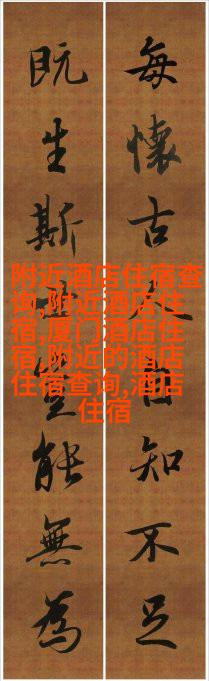 每懷古人自知不足
既生斯能無為
附近酒店住宿查
询,附近酒店住
宿,厦门酒店住
宿,附近的酒店
住宿查询,酒店
住宿